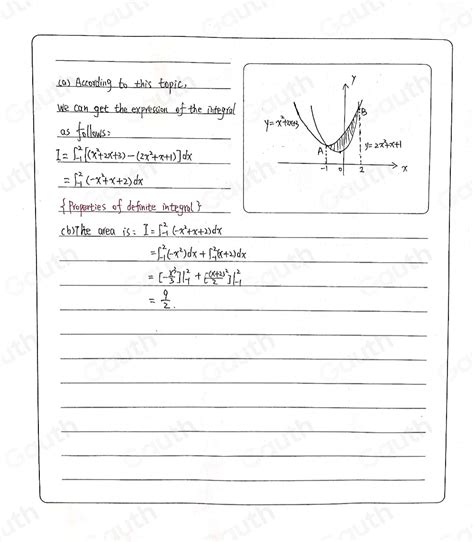 (a) According to this topic,
we can get the expression of the integral
as follows:
I = ∫₋₁² [(x²+2x+3) − (2x²+x+1)] dx
= ∫₋₁² (−x²+x+2) dx
{Properties of definite integral}
(b) The area is: I = ∫₋₁² (−x²+x+2) dx
= ∫₋₁² (−x²) dx + ∫₋₁² (x+2) dx
= [−x³/3]|₋₁² + [(x+2)²/2]|₋₁²
= 9/2.
y
B
y = x²+2x+3
y = 2x²+x+1
A
-1 0 2 x
Gauth